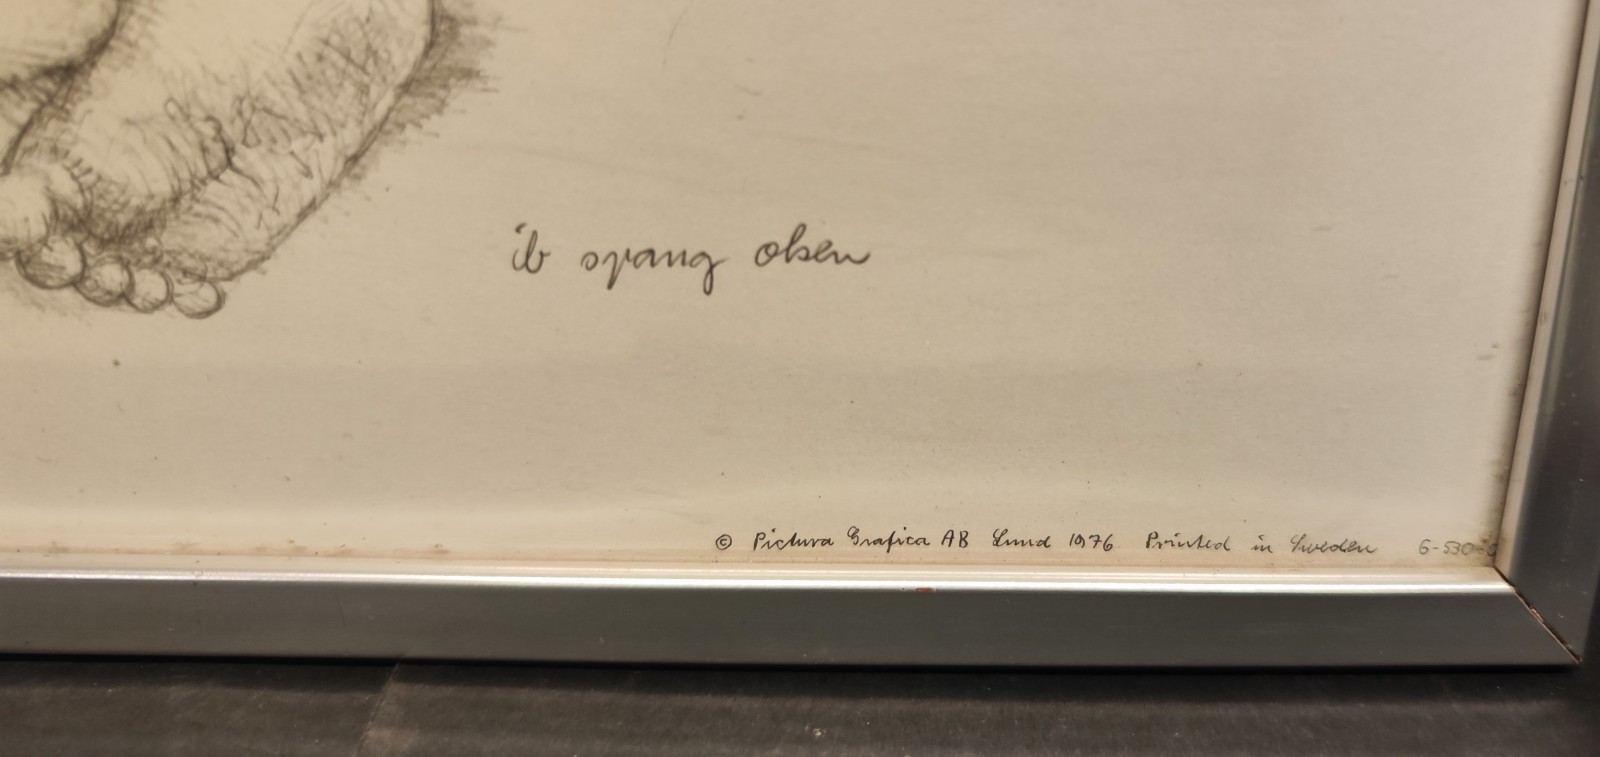 ib spang olsen
© Pictura Grafica AB Lund 1976 Printed in Sweden